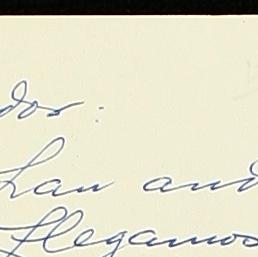 dos:
han and
llegamos